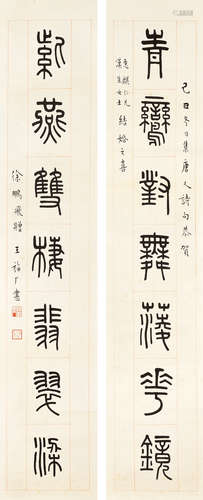 己丑冬日集唐人詩句恭賀
青鸞對舞菱花鏡
仁兄
女士結婚之喜
紫燕雙棲翡翠梁
徐鵬飛贈 王福厂書